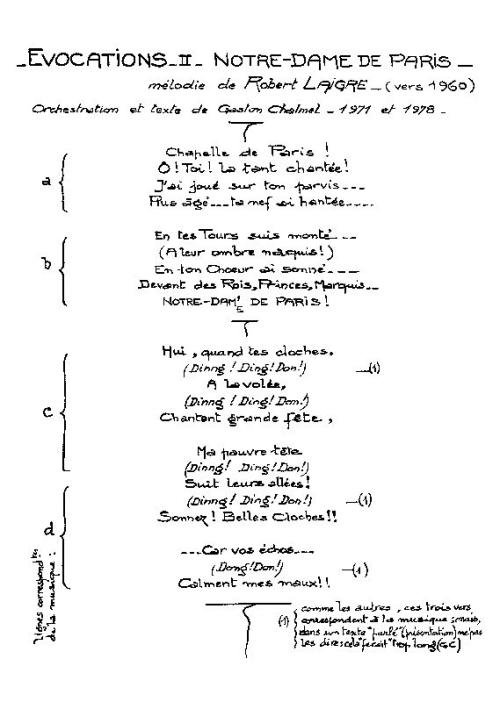 _EVOCATIONS_II_ NOTRE-DAME DE PARIS_
mélodie de Robert LAIGRE_(vers 1960)
Orchestration et texte de Gaston Chalmel_1971 et 1978_
a
Chapelle de Paris !
Ô! Toi! la tant chantée!
J'ai joué sur ton parvis---
Plus âgé---ta nef ai hantée----
b
En tes Tours suis monté---
(A leur ombre naquis!)
En-ton Choeur ai sonné----
Devant des Rois, Princes, Marquis--
NOTRE-DAM'E DE PARIS!
c
Hui, quand tes cloches,
(Dinng! Ding! Don!) _(1)
A la volée,
(Dinng! Ding! Don!)
Chantent grande fête,
Ma pauvre tête
(Dinng! Ding! Don!)
d
Suit leurs allées!
(Dinng! Ding! Don!) _(1)
Sonnez! Belles Cloches!!
---Car vos échos---
(Dong! Don!) _(1)
Calment mes maux!!
Lignes correspond.tes
à la musique:
(1) comme les autres, ces trois vers
correspondent à la musique mais,
dans un texte "parlé" (présentation) ne pas
les dire: cela "ferait" trop long (GC)